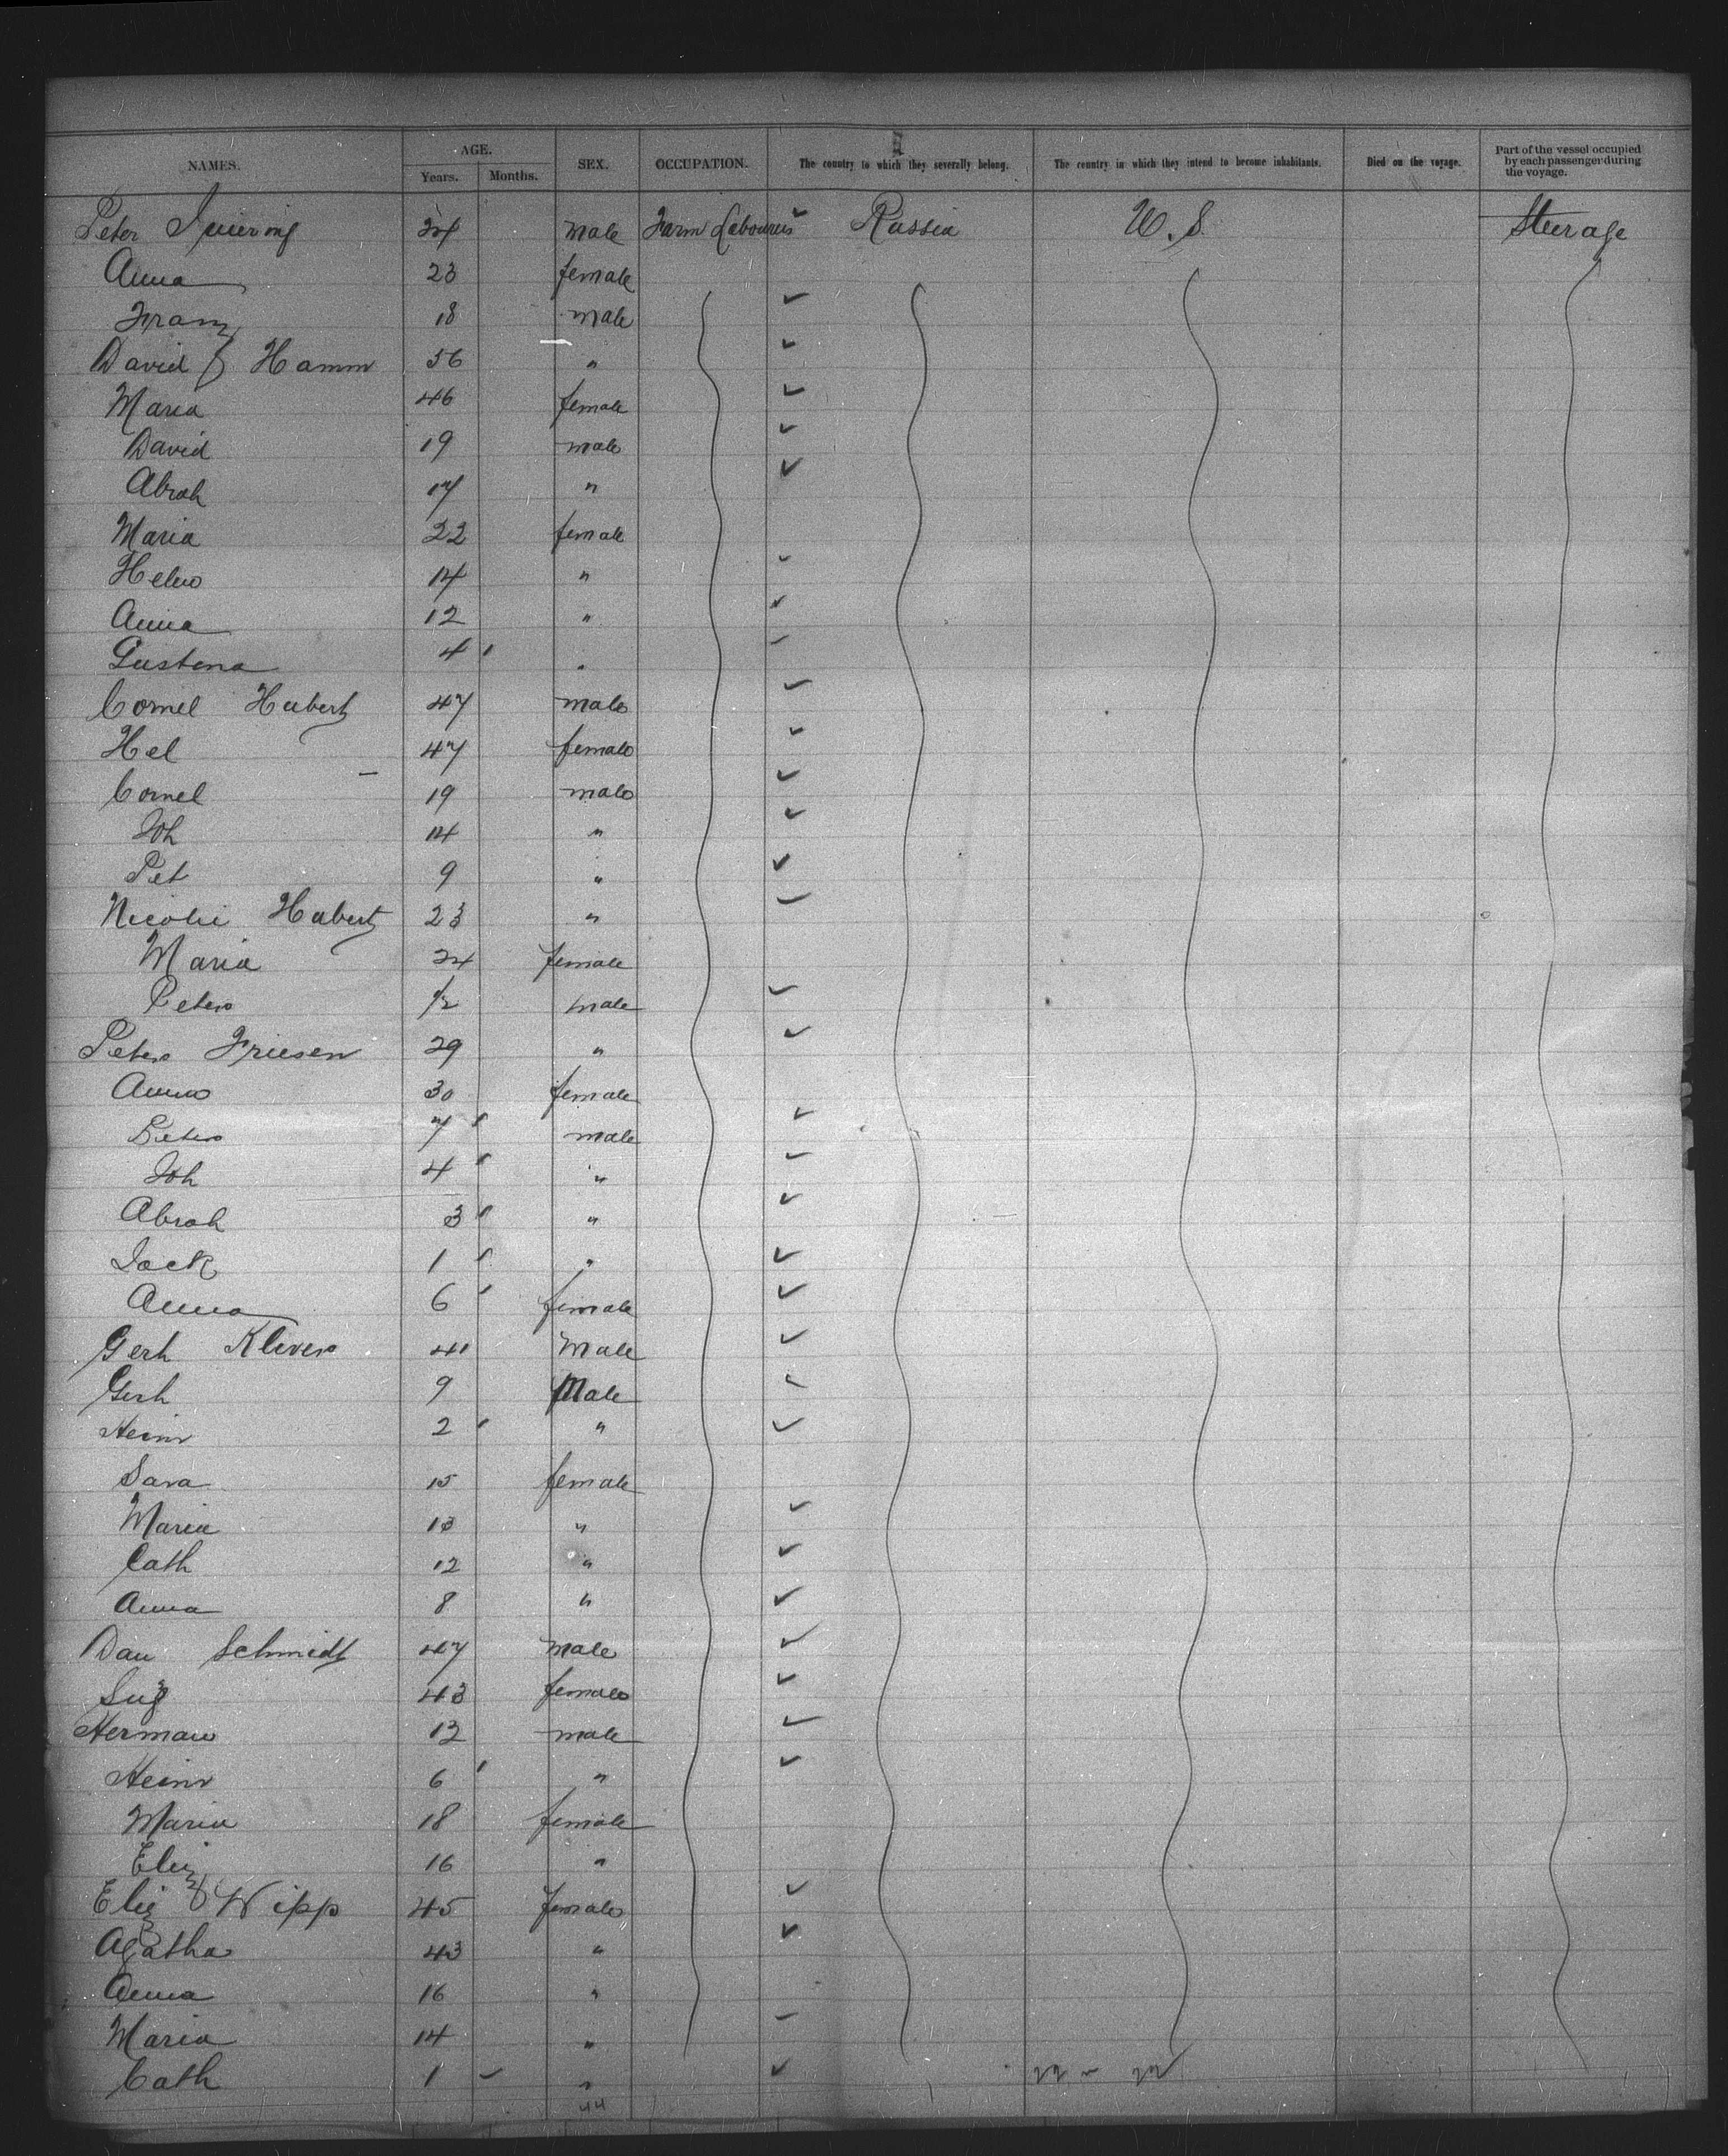 NAMES. AGE. Years. Months. SEX. OCCUPATION. The country to which they severally belong. The country in which they intend to become inhabitants. Died on the voyage. Part of the vessel occupied by each passenger during the voyage.
Peter 24 male Farm Labourers Russia U.S. Steerage
Anna 23 female
Franz 18 male
David Hamm 56 "
Maria 46 female
David 19 male
Abrah 17 "
Maria 22 female
Helen 14 "
Anna 12 "
Justena 4 "
Cornel Hubert 47 male
Hel 47 female
Cornel 19 male
Joh 14 "
Pet 9 "
Nicolei Hubert 23 "
Maria 24 female
Peter 1/2 male
Peter Friesen 29 "
Anna 30 female
Peter 7 male
Joh 4 "
Abrah 3 "
Jack 1 "
Anna 6 female
Gerh Klivers 41 Male
Gerh 9 Male
Heinr 2 "
Sara 15 female
Maria 13 "
Cath 12 "
Anna 8 "
Dan Schmidt 47 male
Suz 43 female
Herman 12 male
Heinr 6 "
Maria 18 female
Eliz 16 "
Eliz Wipp 45 female
Agatha 43 "
Anna 16 "
Maria 14 "
Cath 1 "
44